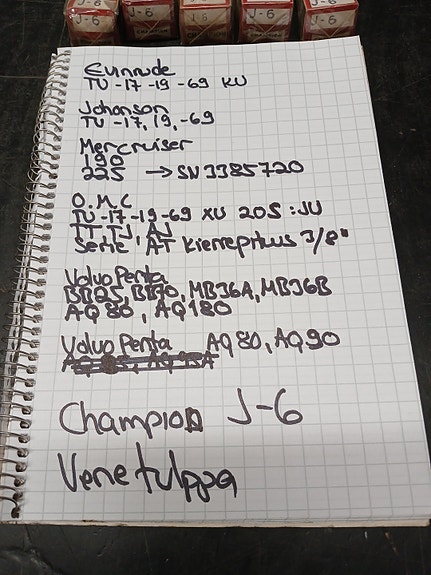 J-6 J-6 J-6 J-6 J-6
CHAMPION
Evinrude
TU -17 -19 -69 KU
Johanson
TU -17, 19, -69
Mercruiser
190
225 → SN 3385720
O.M.C
TU -17 -19 -69 XU 205 : JU
TT TJ AJ
Serie ' AT Kierrepituus 3/8"
Volvo Penta
BB25, BB70, MB36A, MB36B
AQ 80, AQ 180
Volvo Penta AQ 80, AQ90
Champion J-6
Venetulppa